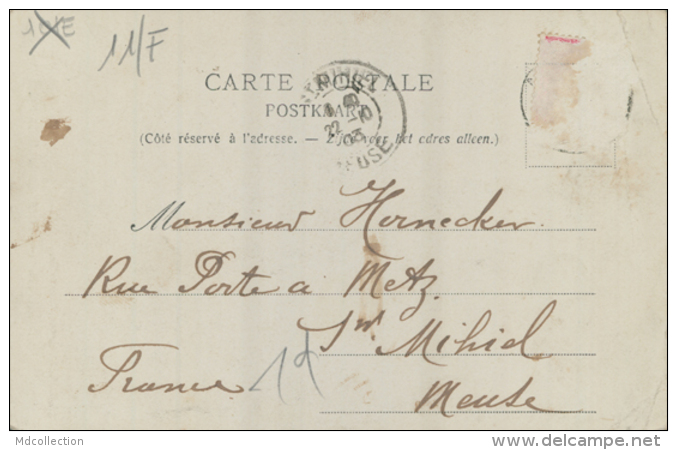 11/F
CARTE POSTALE
POSTKAART
(Côté réservé à l'adresse. — Zijde voor het adres alleen.)
Monsieur Hornecker
Rue Porte a Metz
St Mihiel
France
Meuse
Mdcollection
www.delcampe.net